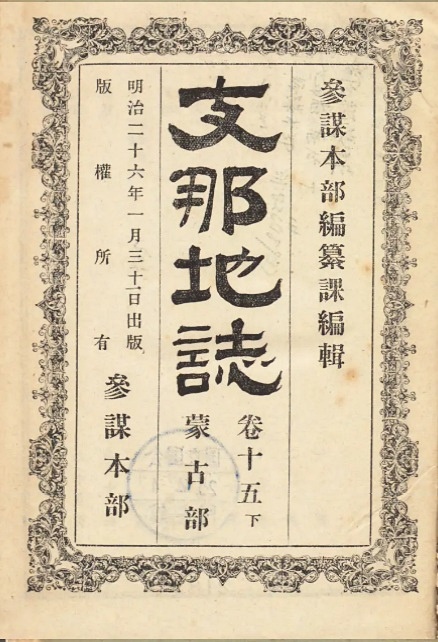 參謀本部編纂課編輯
支那地誌
卷十五下
蒙古部
明治二十六年一月三十一日出版
版權所有
參謀本部